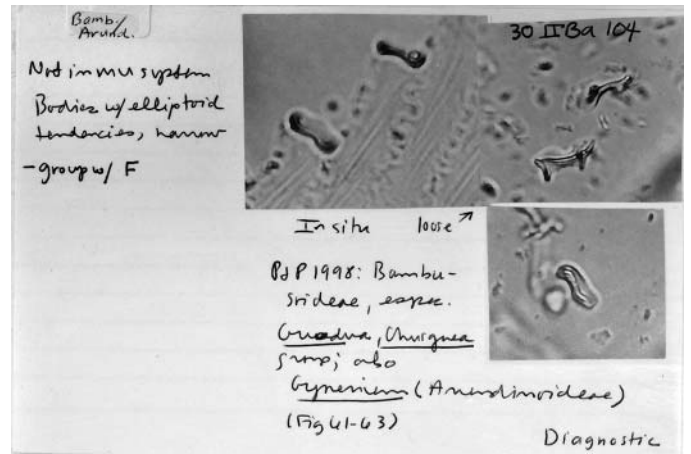 Bamb.
Arund.
30 II Ba 104
Not in mu system
Bodies w/ elliptoid
tendencies, narrow
- group w/ F
In situ loose ↗
P&P 1998: Bambu-
soideae, espec.
Guadua, Chusquea
group; also
Gynerium (Arundinoideae)
(Fig 61-63)
Diagnostic